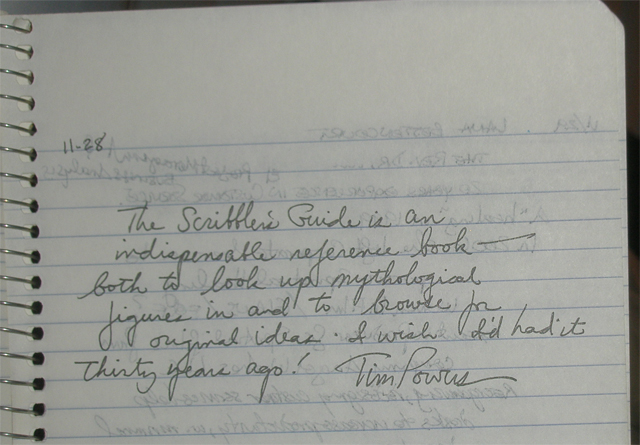 11-28
The Scribbler's Guide is an
indispensable reference book —
both to look up mythological
figures in and to browse for
original ideas. I wish I'd had it
thirty years ago! Tim Powers